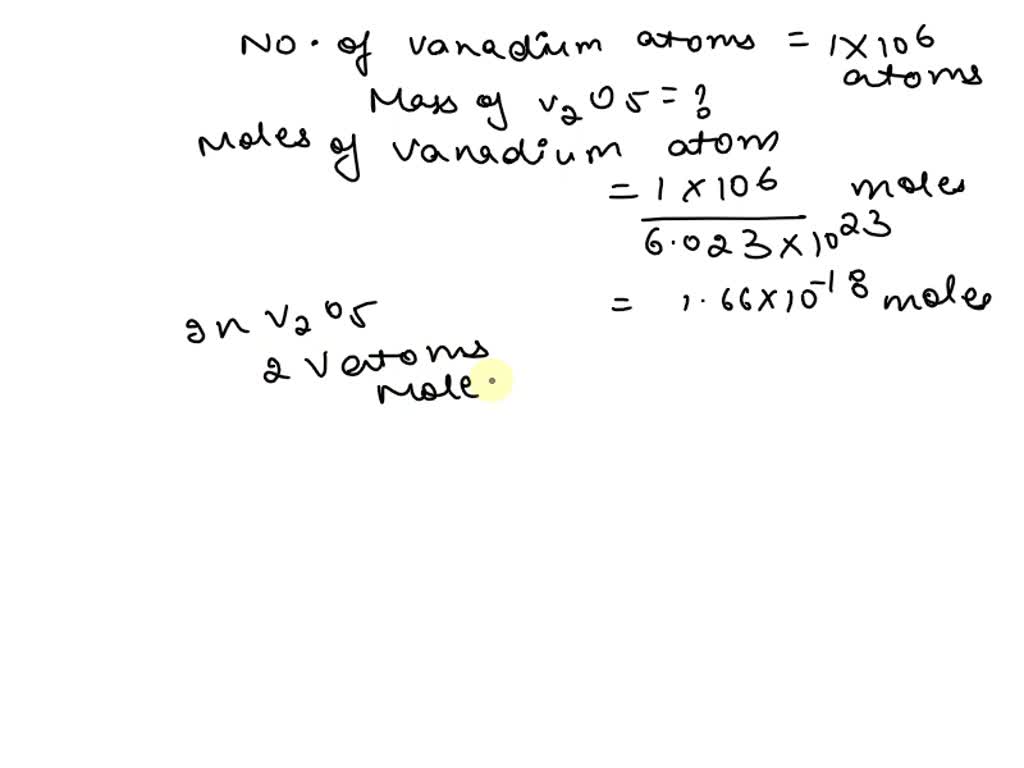 No. of vanadium atoms = 1 × 10⁶ atoms
Mass of V₂O₅ = ?
Moles of vanadium atom
= 1 × 10⁶ / 6.023 × 10²³ moles
= 1.66 × 10⁻¹⁸ moles
In V₂O₅
2 V atoms
Mole